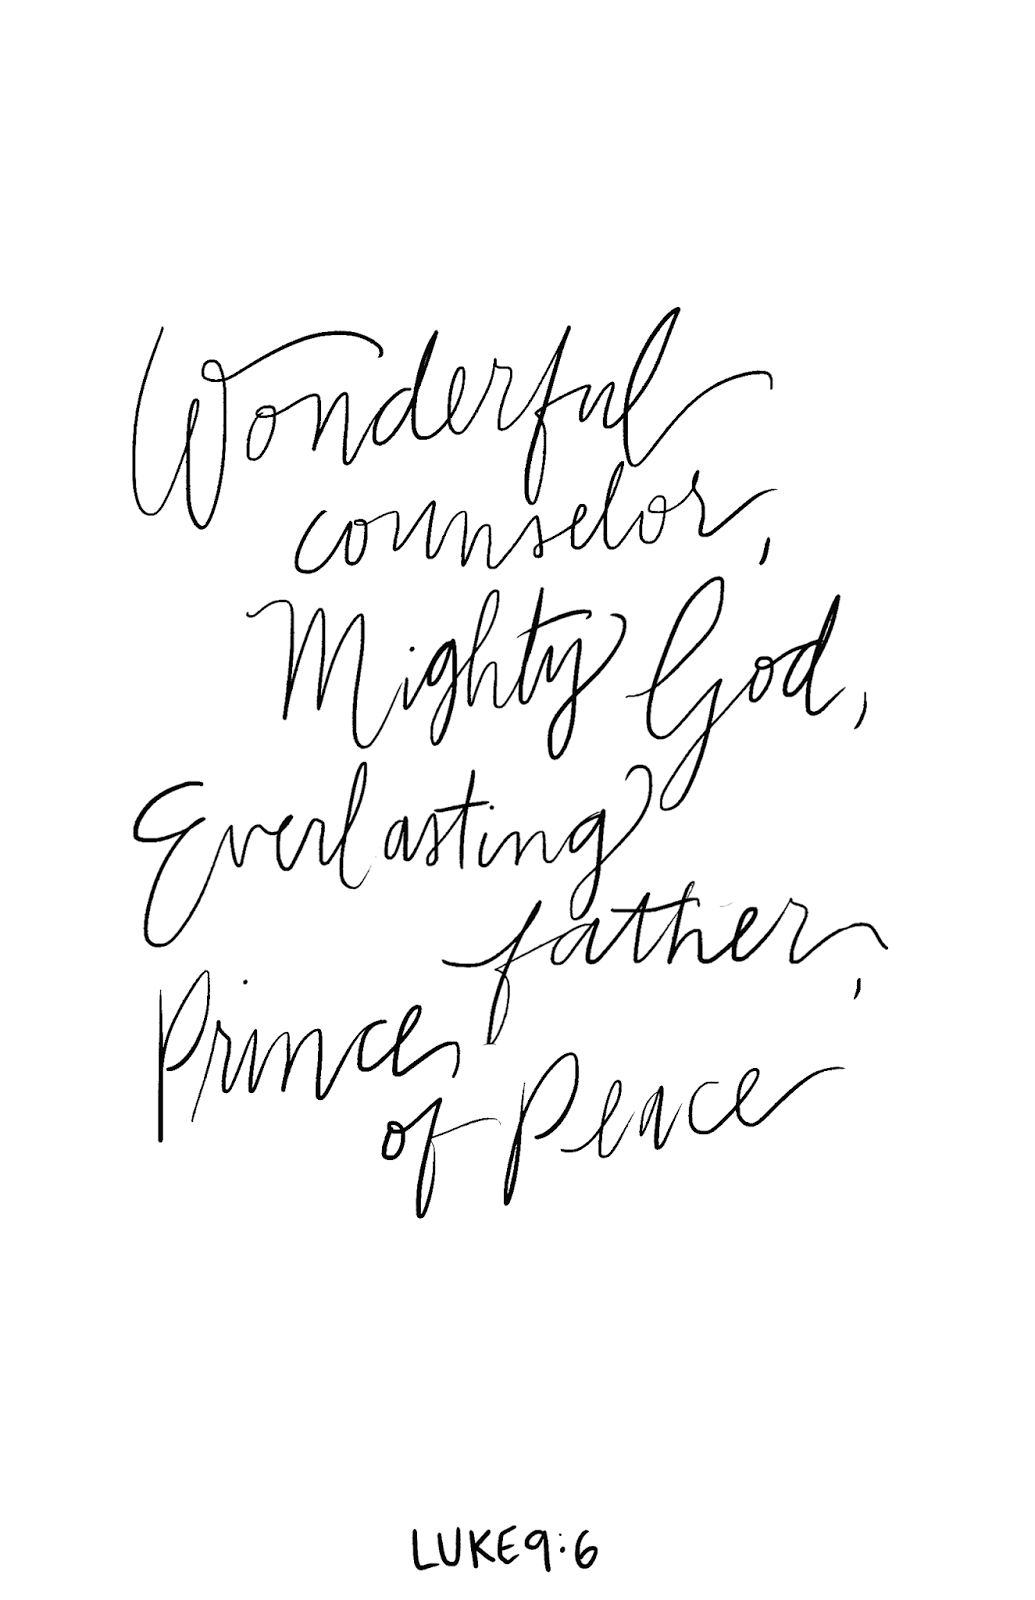 Wonderful
counselor,
Mighty God,
Everlasting
father,
Prince
of Peace
LUKE 9:6